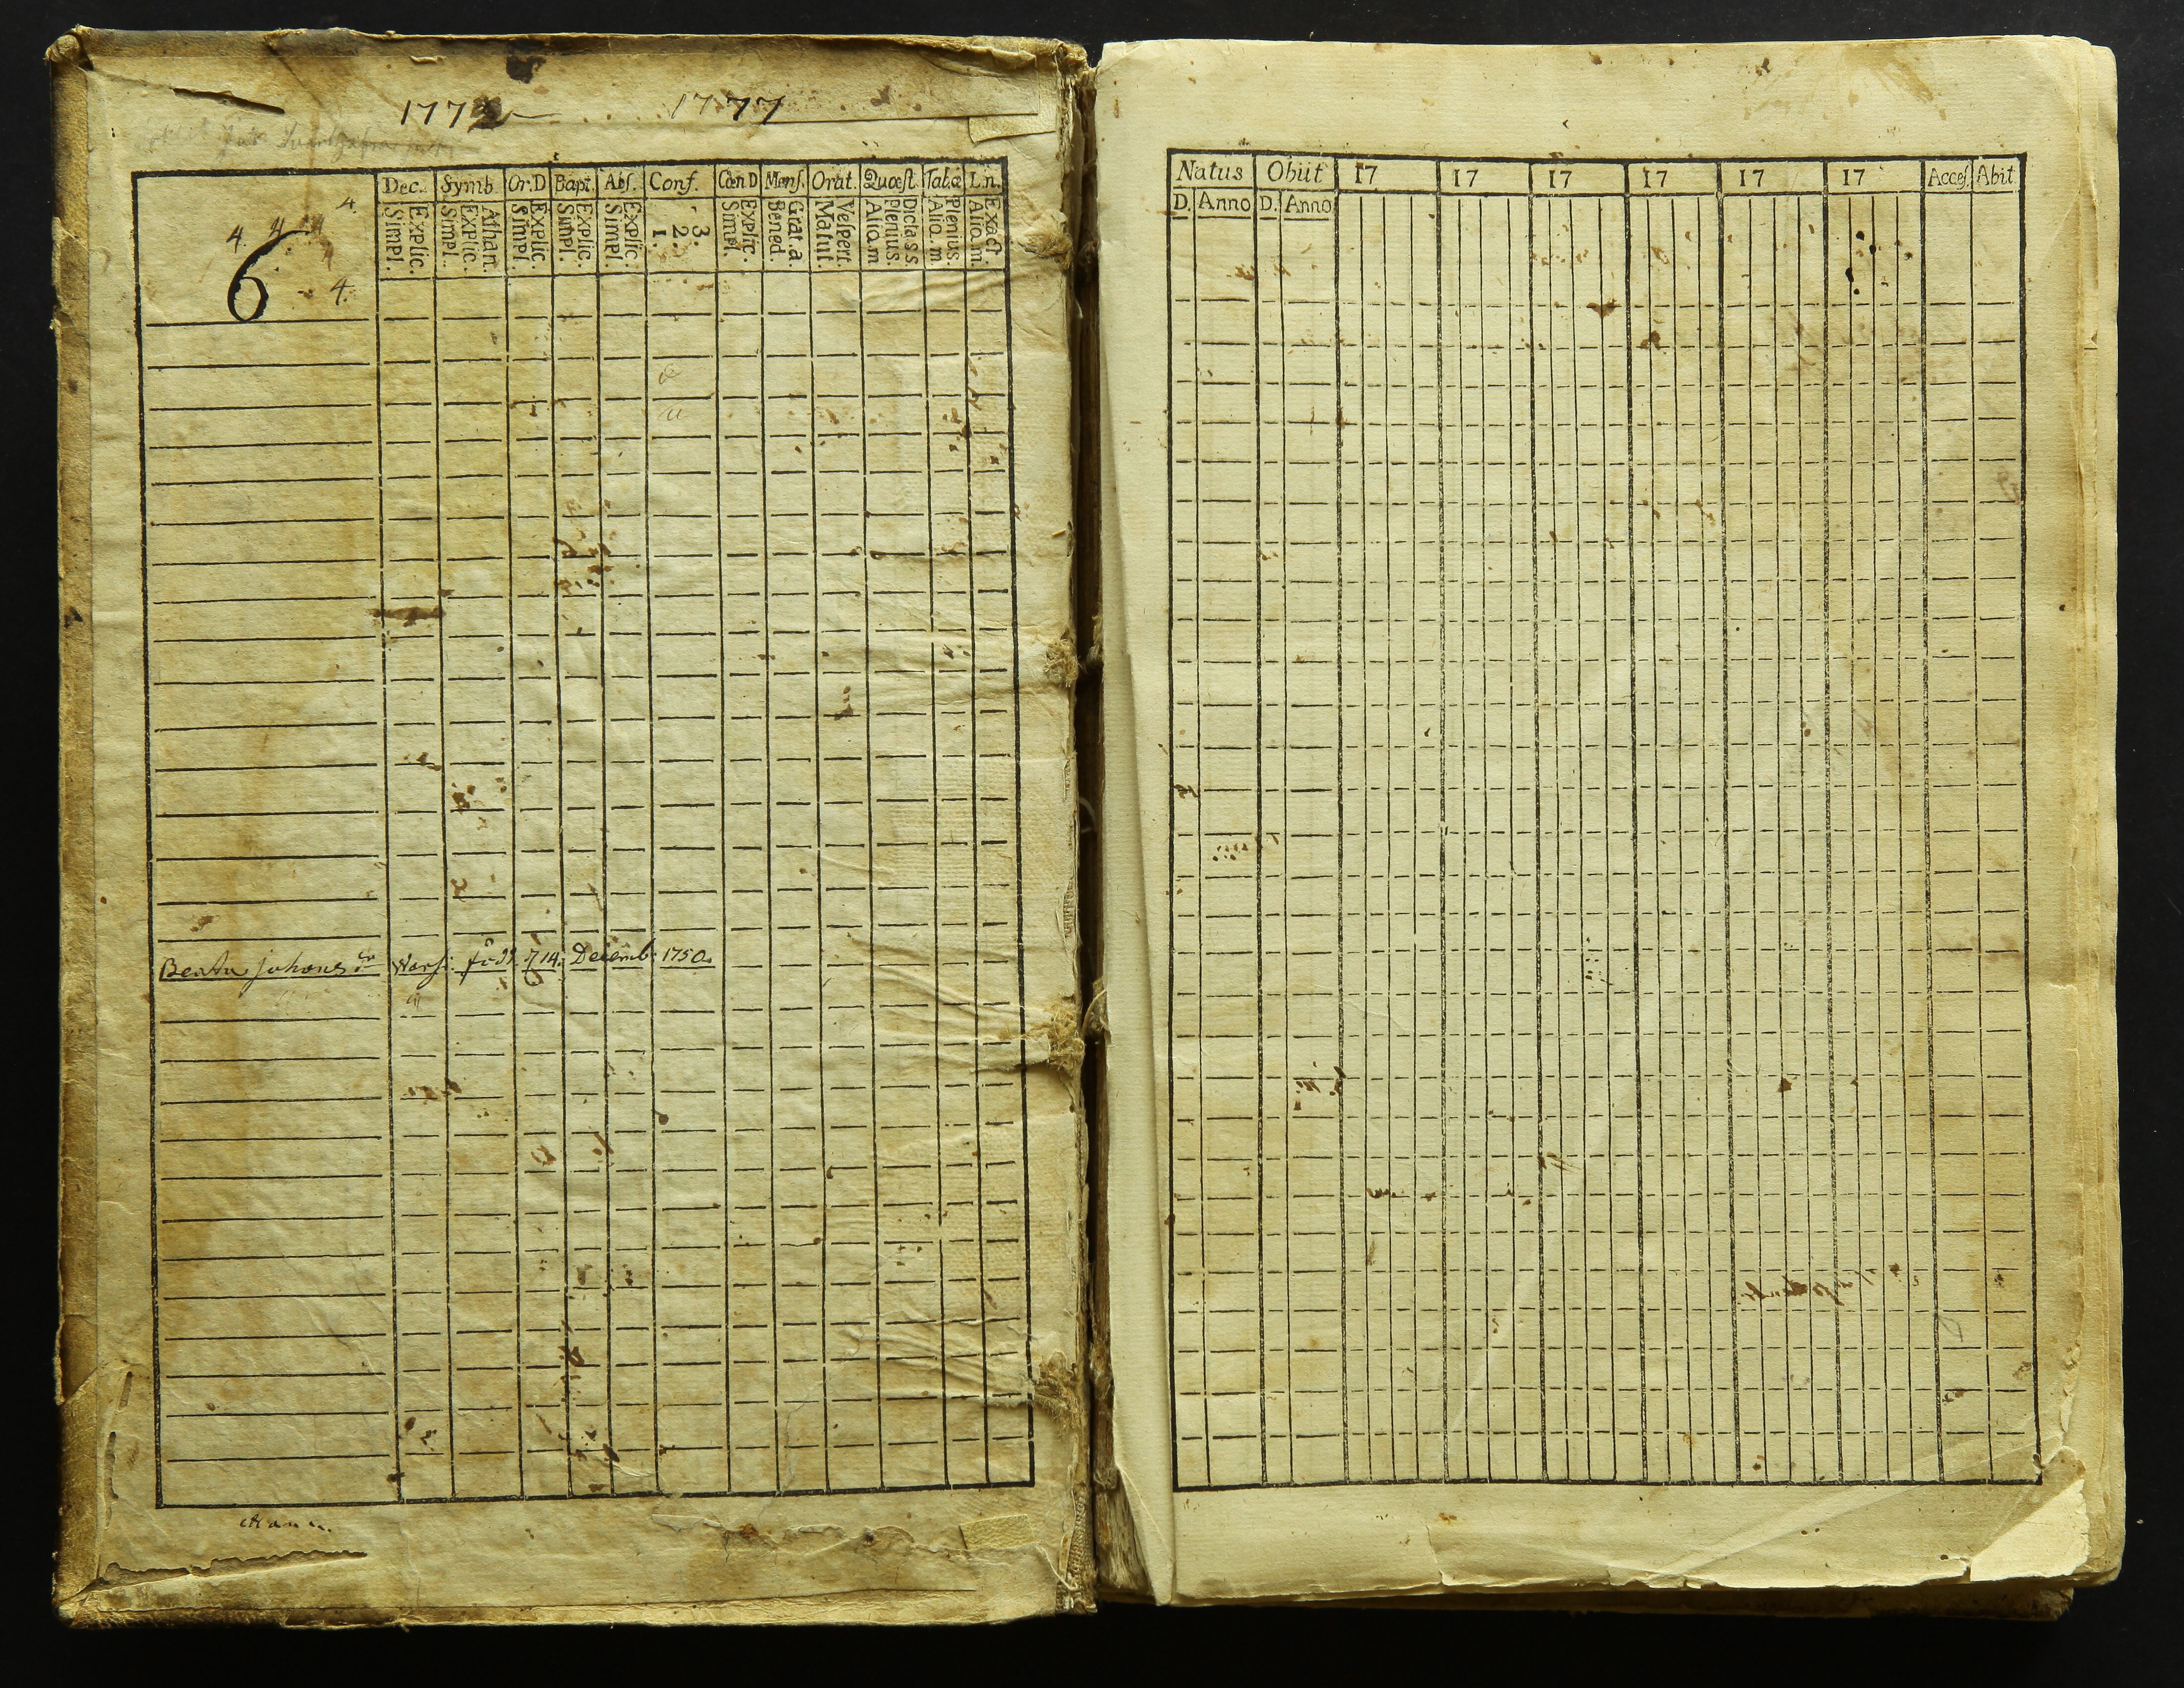 1772 — 1777
Dec. Symb. Or.D Bapt. Abs. Conf. Cœn D Mens. Orat. Quæst. Tab.œ L.n.
Simpl. Explic. Simpl. Explic. Athan. Simpl. Explic. Simpl. Explic. Simpl. Explic. 1. 2. 3. Simpl. Explic. Bened. Grat.a. Matut. Vespert. Alio.m Plenius. Dicta s s. Alio.m Plenius. Alio.m. Exact.
4.
4. 4. 4
6
4.
Beata Johans dr 14. Decemb. 1750.
Natus Obiit 17 17 17 17 17 17 Acces. Abit
D. Anno D. Anno